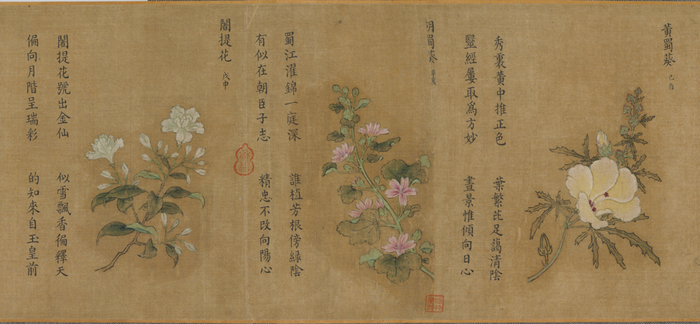 黃蜀葵 己酉
秀裹黃中推正色 葉繁茈足藹清陰
毉經屢取為方妙 晝景惟傾向日心
蜀葵
蜀江濯錦一庭深 誰植芳根傍綠陰
有似在朝臣子志 精忠不改向陽心
闍提花 戊申
闍提花號出金仙 似雪飄香徧釋天
偏向月階呈瑞彩 的知來自玉皇前